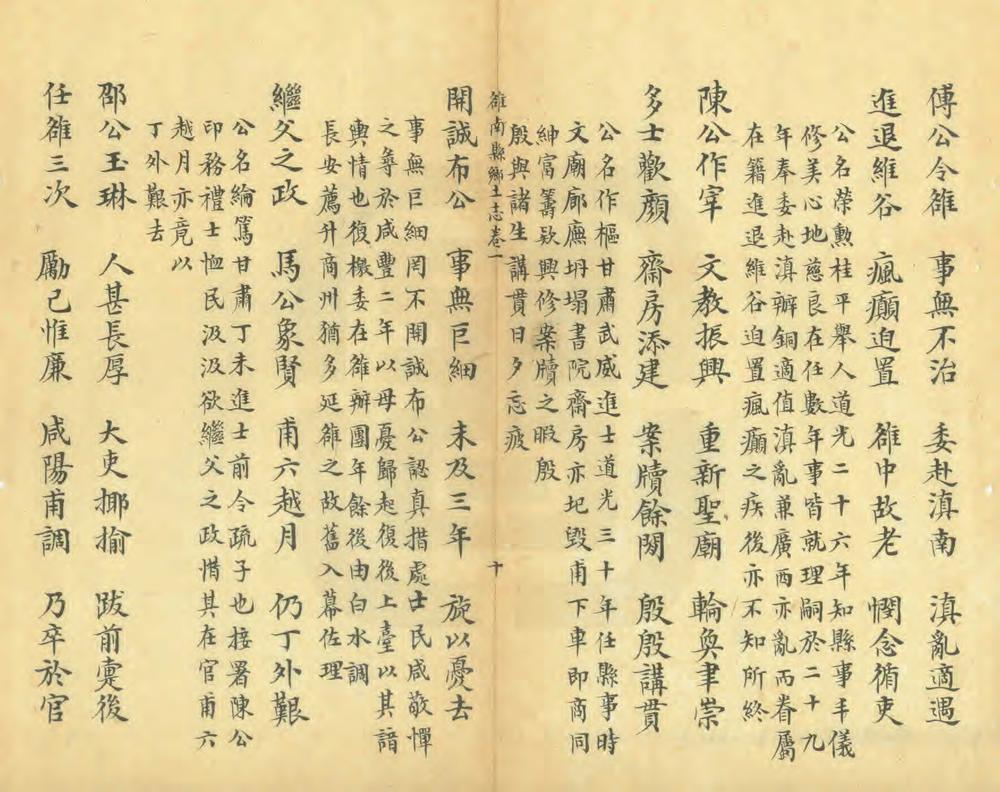 傅公令雒 事無不治 委赴滇南 滇亂適遇
進退維谷 瘋癲迫置 雒中故老 憫念循吏
公名榮勲桂平舉人道光二十六年知縣事丰儀
修美心地慈良在任數年事皆就理嗣於二十九
年奉委赴滇辦銅適值滇亂兼廣西亦亂而眷屬
在籍進退維谷迫置瘋癲之疾後亦不知所終
陳公作宰 文教振興 重新聖廟 輪奐聿崇
多士歡顏 齋房添建 案牘餘閒 殷殷講貫
公名作樞甘肅武威進士道光三十年任縣事時
文廟廊廡坍塌書院齋房亦圮毁甫下車即商同
紳富籌欵興修案牘之暇殷
殷與諸生講貫日夕忘疲
雒南縣鄉土志卷一 十
開誠布公 事無巨細 未及三年 旋以憂去
事無巨細罔不開誠布公認真措處士民咸敬憚
之尊於咸豐二年以母憂歸起復後上臺以其諳
輿情也復檄委在雒辦團年餘後由白水調
長安薦升商州猶多延雒之故舊入幕佐理
繼父之政 馬公象賢 甫六越月 仍丁外艱
公名綸篤甘肅丁未進士前令疏子也接署陳公
印務禮士恤民汲汲欲繼父之政惜其在官甫六
越月亦竟以
丁外艱去
邵公玉琳 人甚長厚 大吏揶揄 跋前疐後
任雒三次 勵己惟廉 咸陽甫調 乃卒於官